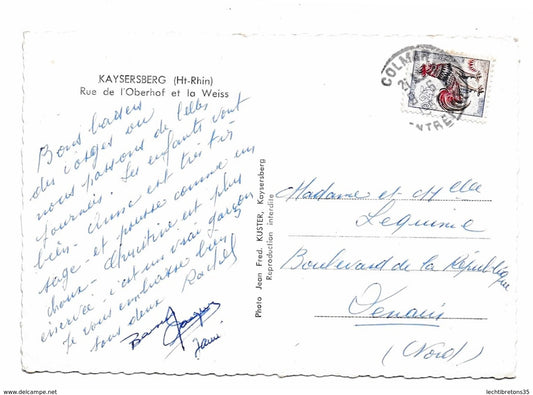 KAYSERSBERG (Ht-Rhin)
Rue de l'Oberhof et la Weiss
Bons baisers
des Vosges où
nous passons de belles
journées. Les enfants vont
bien. Anne est très
sage et pousse comme un
chou. Christine est plus
c'est un vrai garçon
Je vous embrasse bien
tous deux Rachel
Photo Jean Fred. KUSTER, Kaysersberg
Reproduction interdite
COLMAR
Madame et Melle
Lequime
Boulevard de la République
Denain
(Nord)
© lechtibretons35
www.delcampe.net